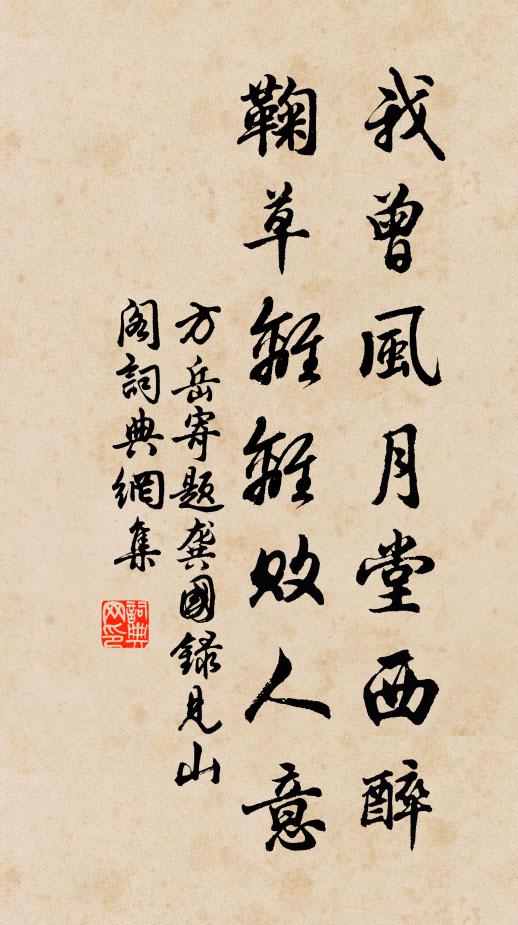 我曾風月堂西醉
鞠草離離敗人意
方岳寄題龔國錄見山
閣詞典網集
詞典网印